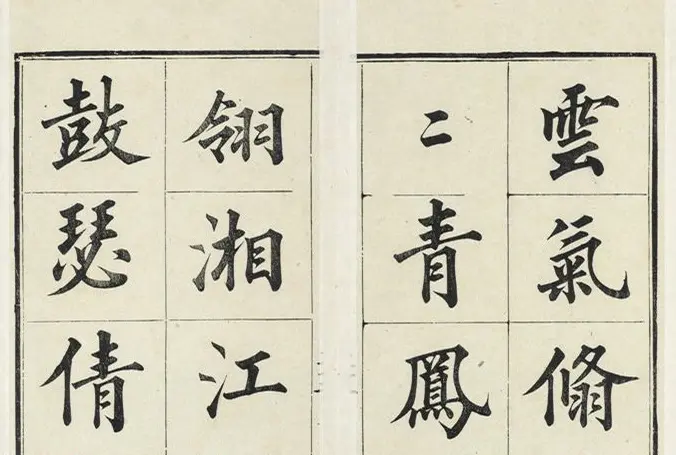 雲氣翛
二青鳳
翎湘江
鼓瑟倩